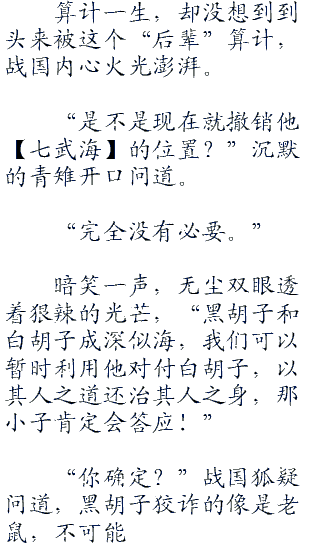 算计一生，却没想到到
头来被这个“后辈”算计，
战国内心火光澎湃。
“是不是现在就撤销他
【七武海】的位置？”沉默
的青雉开口问道。
“完全没有必要。”
暗笑一声，无尘双眼透
着狠辣的光芒，“黑胡子和
白胡子成深似海，我们可以
暂时利用他对付白胡子，以
其人之道还治其人之身，那
小子肯定会答应！”
“你确定？”战国狐疑
问道，黑胡子狡诈的像是老
鼠，不可能